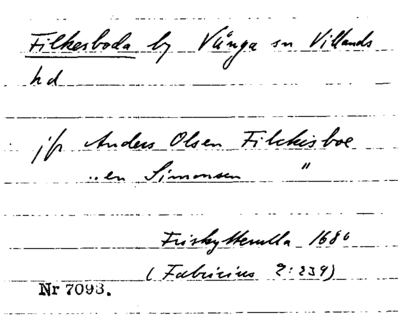 Filkesboda by Vånga sn Villands
hd
jfr Anders Olsen Filckisboe
..en Simonsen "
Friskytterulla 1680
(Fabricius 2:239)
Nr 7093.